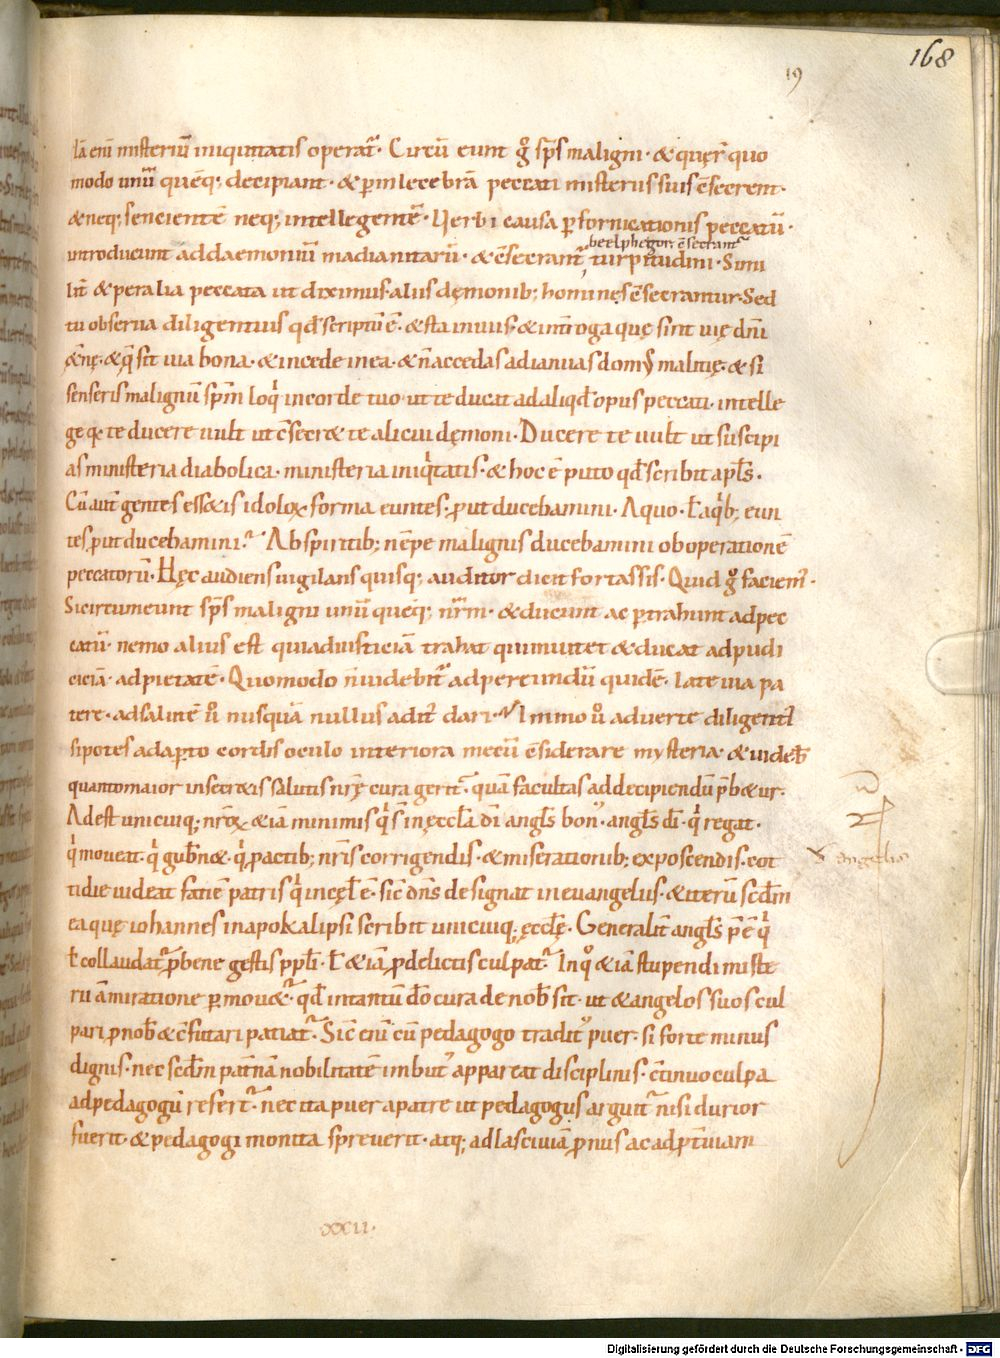 168
19
Iā eni misteriū iniquitatis operat᷑. Circū eunt gͦ sp̄s maligni. & querͬ quo
modo unū quēq; decipiant. & p̱ inlecebrā peccati misteriis suis c̄secrent.
& neq; sencientē neq; intellegentē. Uerbi causa p̱ fornicationis peccatū.
beelphegor c̄secrant᷑
introducunt ad daemoniū madianitarū. & c̄secrant᷑ turpitudini. Simi
lit̄ & per alia peccata ut diximus. aliis dęmonib; homines c̄secrantur. Sed
tu obserua diligentius qđ scriptū ē. & sta in uiis. & int̄roga quę sint uię dn̄i
ęt̄nę. & q̄ sit uia bona. & incede in ea. & n̄ accedas ad ianuas domꝰ malitię. & si
senseris malignū sp̄m loqͥ in corde tuo. ut te ducat ad aliqđ opus peccati. intelle
ge qͣ te ducere uult ut c̄secr& te alicui dęmoni. Ducere te uult ut suscipi
as ministeria diabolica. ministeria iniqͥtatis. & hoc ē puto qđ scribit apl̄s.
Cū aut̄ gentes ess&is idoloꝝ forma euntes. ꝓut ducebamini. A quo. ł a qͥb; eun
tes ꝓut ducebamini? Ab spiritib; nēpe malignis ducebamini ob operationē
peccatorū. Hęc audiens uigilans quisq; auditor dicit fortassis. Quid gͦ faciem᷑.
Si circumeunt sp̄s maligni unū quēq; nr̄m. & ducunt ac p̱trahunt ad pec
catū. nemo alius est qui ad iusticiā trahat qui inuitet & ducat ad pudi
ciciā. ad pietatē. Quomodo n̄ uidebit᷑ ad pereundū quidē. late uia pa
tere. ad salutē ū nusquā nullus adit᷑ dari? Immo ū aduerte diligent᷑
si potes adap̱to cordis oculo interiora mecū c̄siderare mysteria. & uideb᷑
quanto maior in secr&is salutis nr̄ę cura gerit᷑. quā facultas ad decipiendū p̄b&ur.
Adest unicuiq; nr̄oꝝ &iā minimis qͥ s̄ in ęccl̄a dī angl̄s bonꝰ. angl̄s dī. qͥ regat.
qͥ moueat. qͥ gub̄n&. qͥ p̱ actib; nr̄is corrigendis. & miserationib; exposcendis. cot
angelis
tidie uideat faciē patris qͥ in cęl̄ ē. sic̄ dn̄s designat in euangeliis. & iterū scđm
ea quę iohannes in apokalipsi scribit unicuiq; ęccl̄ę. Generalit̄ angl̄s p̄ē qͥ
ł collaudat᷑ p̱ bene gestis ppl̄i. ł &iā ꝓ delictis culpat᷑. In qͦ &iā stupendi miste
rii āmiratione p̱mou&᷑. qđ in tantū do cura de nob̄ sit. ut & angelos suos cul
pari ꝓ nob̄ & c̄futari patiat᷑. Sic̄ eni cū pedagogo tradit᷑ puer. si forte minus
dignis. nec scđm pat̄nā nobilitatē imbut᷑ appareat disciplinis. c̄tinuo culpa
ad pedagogū refert᷑. nec ita puer a patre ut pedagogus arguit᷑ nisi durior
fuerit. & pedagogi monita spreuerit. atq; ad lasciuiā ꝓnus ac ad pt̄uiam
.XXII.
Digitalisierung gefördert durch die Deutsche Forschungsgemeinschaft - DFG